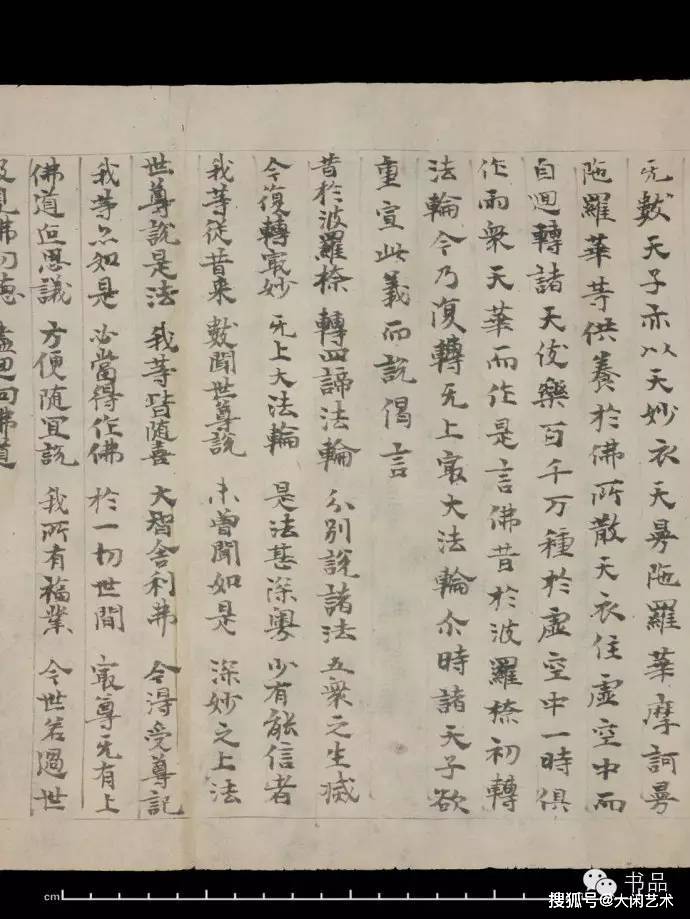 无數天子亦以天妙衣天曼陁羅華摩訶曼
陁羅華等供養於佛所散天衣住虛空中而
自迴轉諸天伎樂百千万種於虛空中一時俱
作而衆天華而作是言佛昔於波羅柰初轉
法輪今乃復轉无上㝡大法輪尒時諸天子欲
重宣此義而說偈言
昔於波羅柰 轉四諦法輪 分別說諸法 五衆之生滅
今復轉㝡妙 无上大法輪 是法甚深奧 少有能信者
我等從昔来 數聞世尊說 未曾聞如是 深妙之上法
世尊說是法 我等皆随喜 大智舍利弗 今得受尊記
我等亦如是 必當得作佛 於一切世間 㝡尊无有上
佛道叵思議 方便随宜說 我所有福業 今世若過世
及見佛功德 盡迴向佛道
cm
书品
搜狐号@大闲艺术